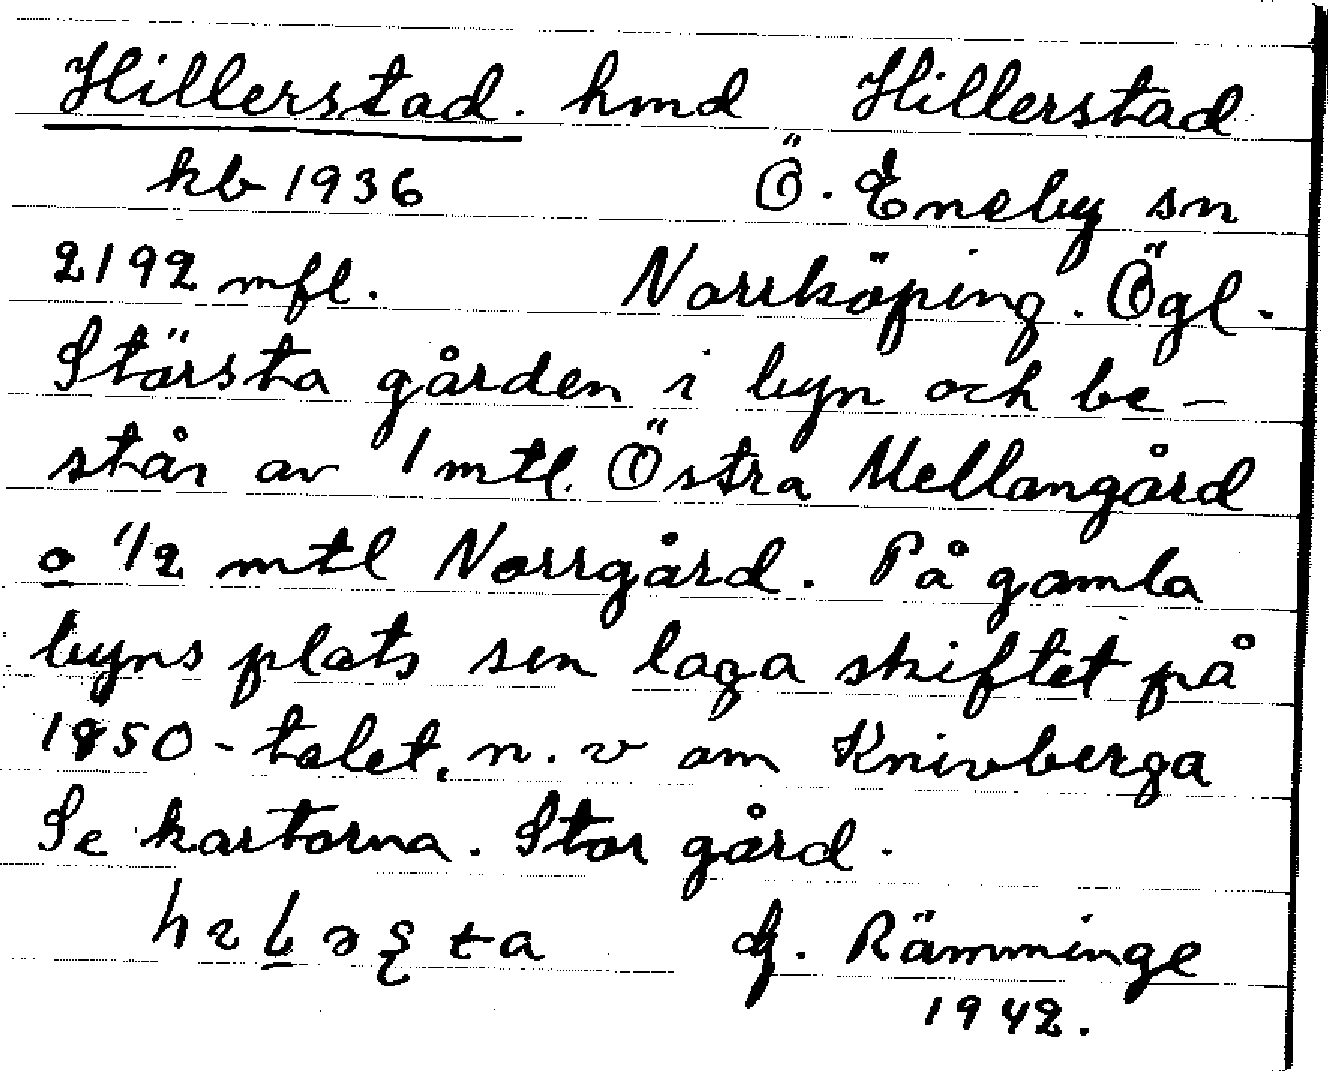 Hillerstad. hmd Hillerstad
kb 1936 Ö. Eneby sn
2192 mfl. Norrköping. Ögl.
Största gården i byn och be-
står av 1 mtl. Östra Mellangård
o 1/2 mtl Norrgård. På gamla
byns plats sen laga skiftet på
1850-talet, n. v om Knivberga
Se kartorna. Stor gård.
G. Rämminge
1942.